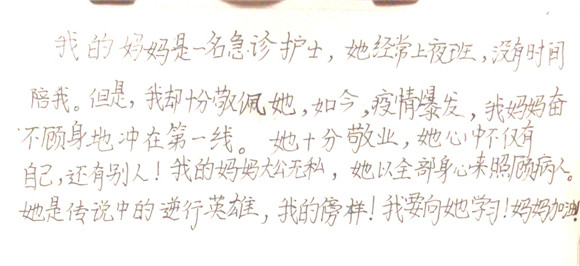 我的妈妈是一名急诊护士，她经常上夜班，没有时间
陪我。但是，我却十分敬佩她，如今，疫情爆发，我妈妈奋
不顾身地冲在第一线。她十分敬业，她心中不仅有
自己，还有别人！我的妈妈大公无私，她以全部身心来照顾病人。
她是传说中的逆行英雄，我的傍样！我要向她学习！妈妈加油！